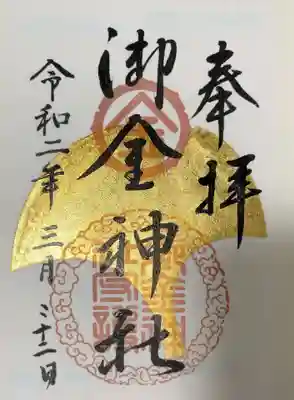 奉拝
御金神社
令和二年三月二十一日